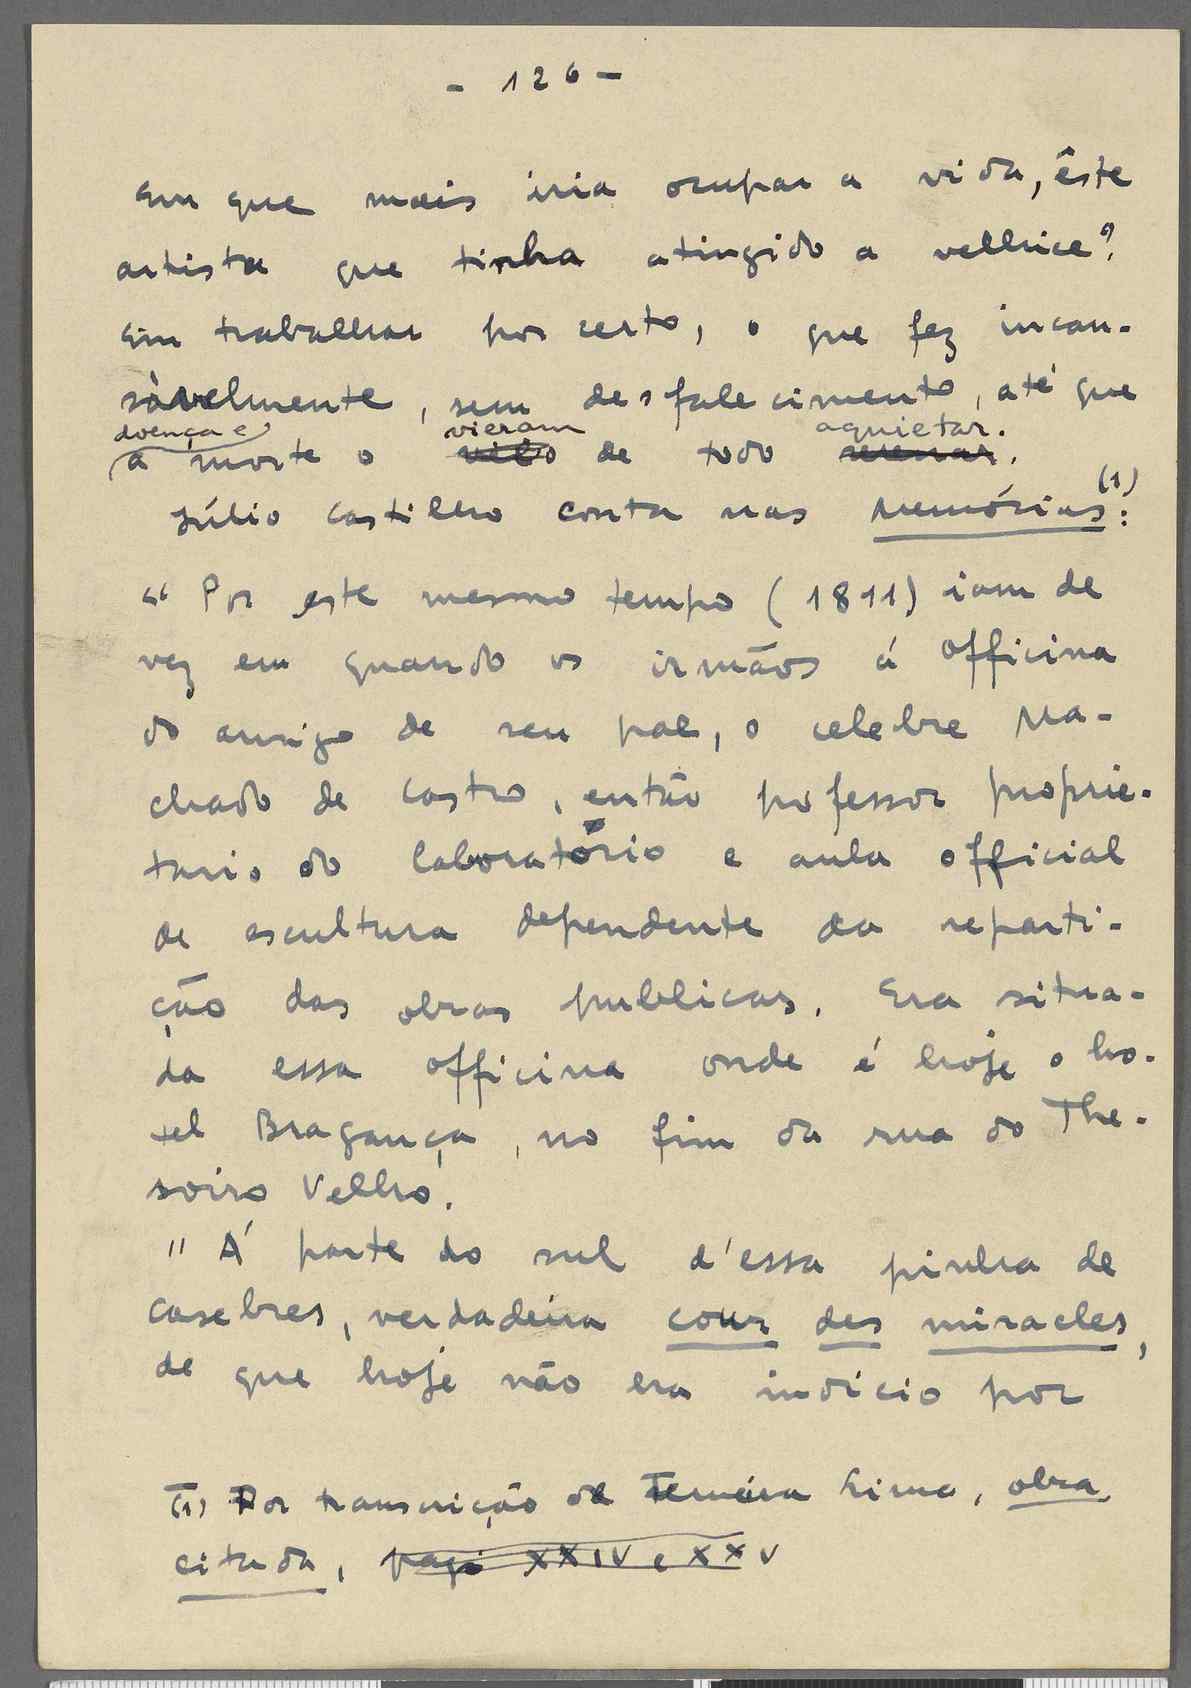 - 126 -
Em que mais iria ocupar a vida, êste
artista que tinha atingido a velhice?
Em trabalhar por certo, o que fez incan-
sàvelmente, sem desfalecimento, até que
doença e vieram aquietar.
a morte o veio de todo serenar.
Júlio Castilho conta nas Memórias (1):
"Por este mesmo tempo (1811) iam de
vez em quando os irmãos á officina
do amigo de seu pae, o celebre Ma-
chado de Castro, então professor proprie-
tario do laboratório e aula official
de escultura dependente da reparti-
ção das obras publicas. Era situa-
da essa officina onde é hoje o ho-
tel Bragança, no fim da rua do The-
soiro Velho.
"Á parte do sul d'essa pinha de
casebres, verdadeira cour des miracles,
de que hoje não era indicio por
(1) Por transcrição de Ferreira Lima, obra
citada, pagi XXIV e XXV